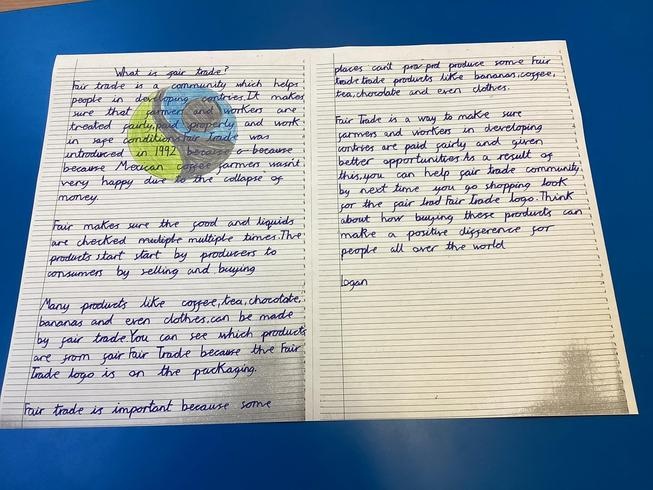 What is fair trade?
Fair trade is a community which helps
people in developing contries.It makes
sure that farmer and workers are
treated fairly,paid properly and work
in safe conditions.Fair Trade was
introduced in 1992 because a because
because Mexican coffee farmers wasn't
very happy due to the collapse of
money.
Fair makes sure the food and liquids
are checked multiple multiple times.The
products start start by producers to
consumers by selling and buying
Many products like coffee,tea,chocolate,
bananas and even clothes,can be made
by fair trade.You can see which products
are from fair Fair Trade because the Fair
Trade logo is on the packaging.
Fair trade is important because some
places can't pro prd produce some Fair
trade trade products like bananas,coffee,
tea,chocolate and even clothes.
Fair Trade is a way to make sure
farmers and workers in developing
contries are paid fairly and given
better opportunities.As a result of
this,you can help fair trade community
by next time you go shopping look
for the fair trad Fair trade logo.Think
about how buying these products can
make a positive difference for
people all over the world
logan